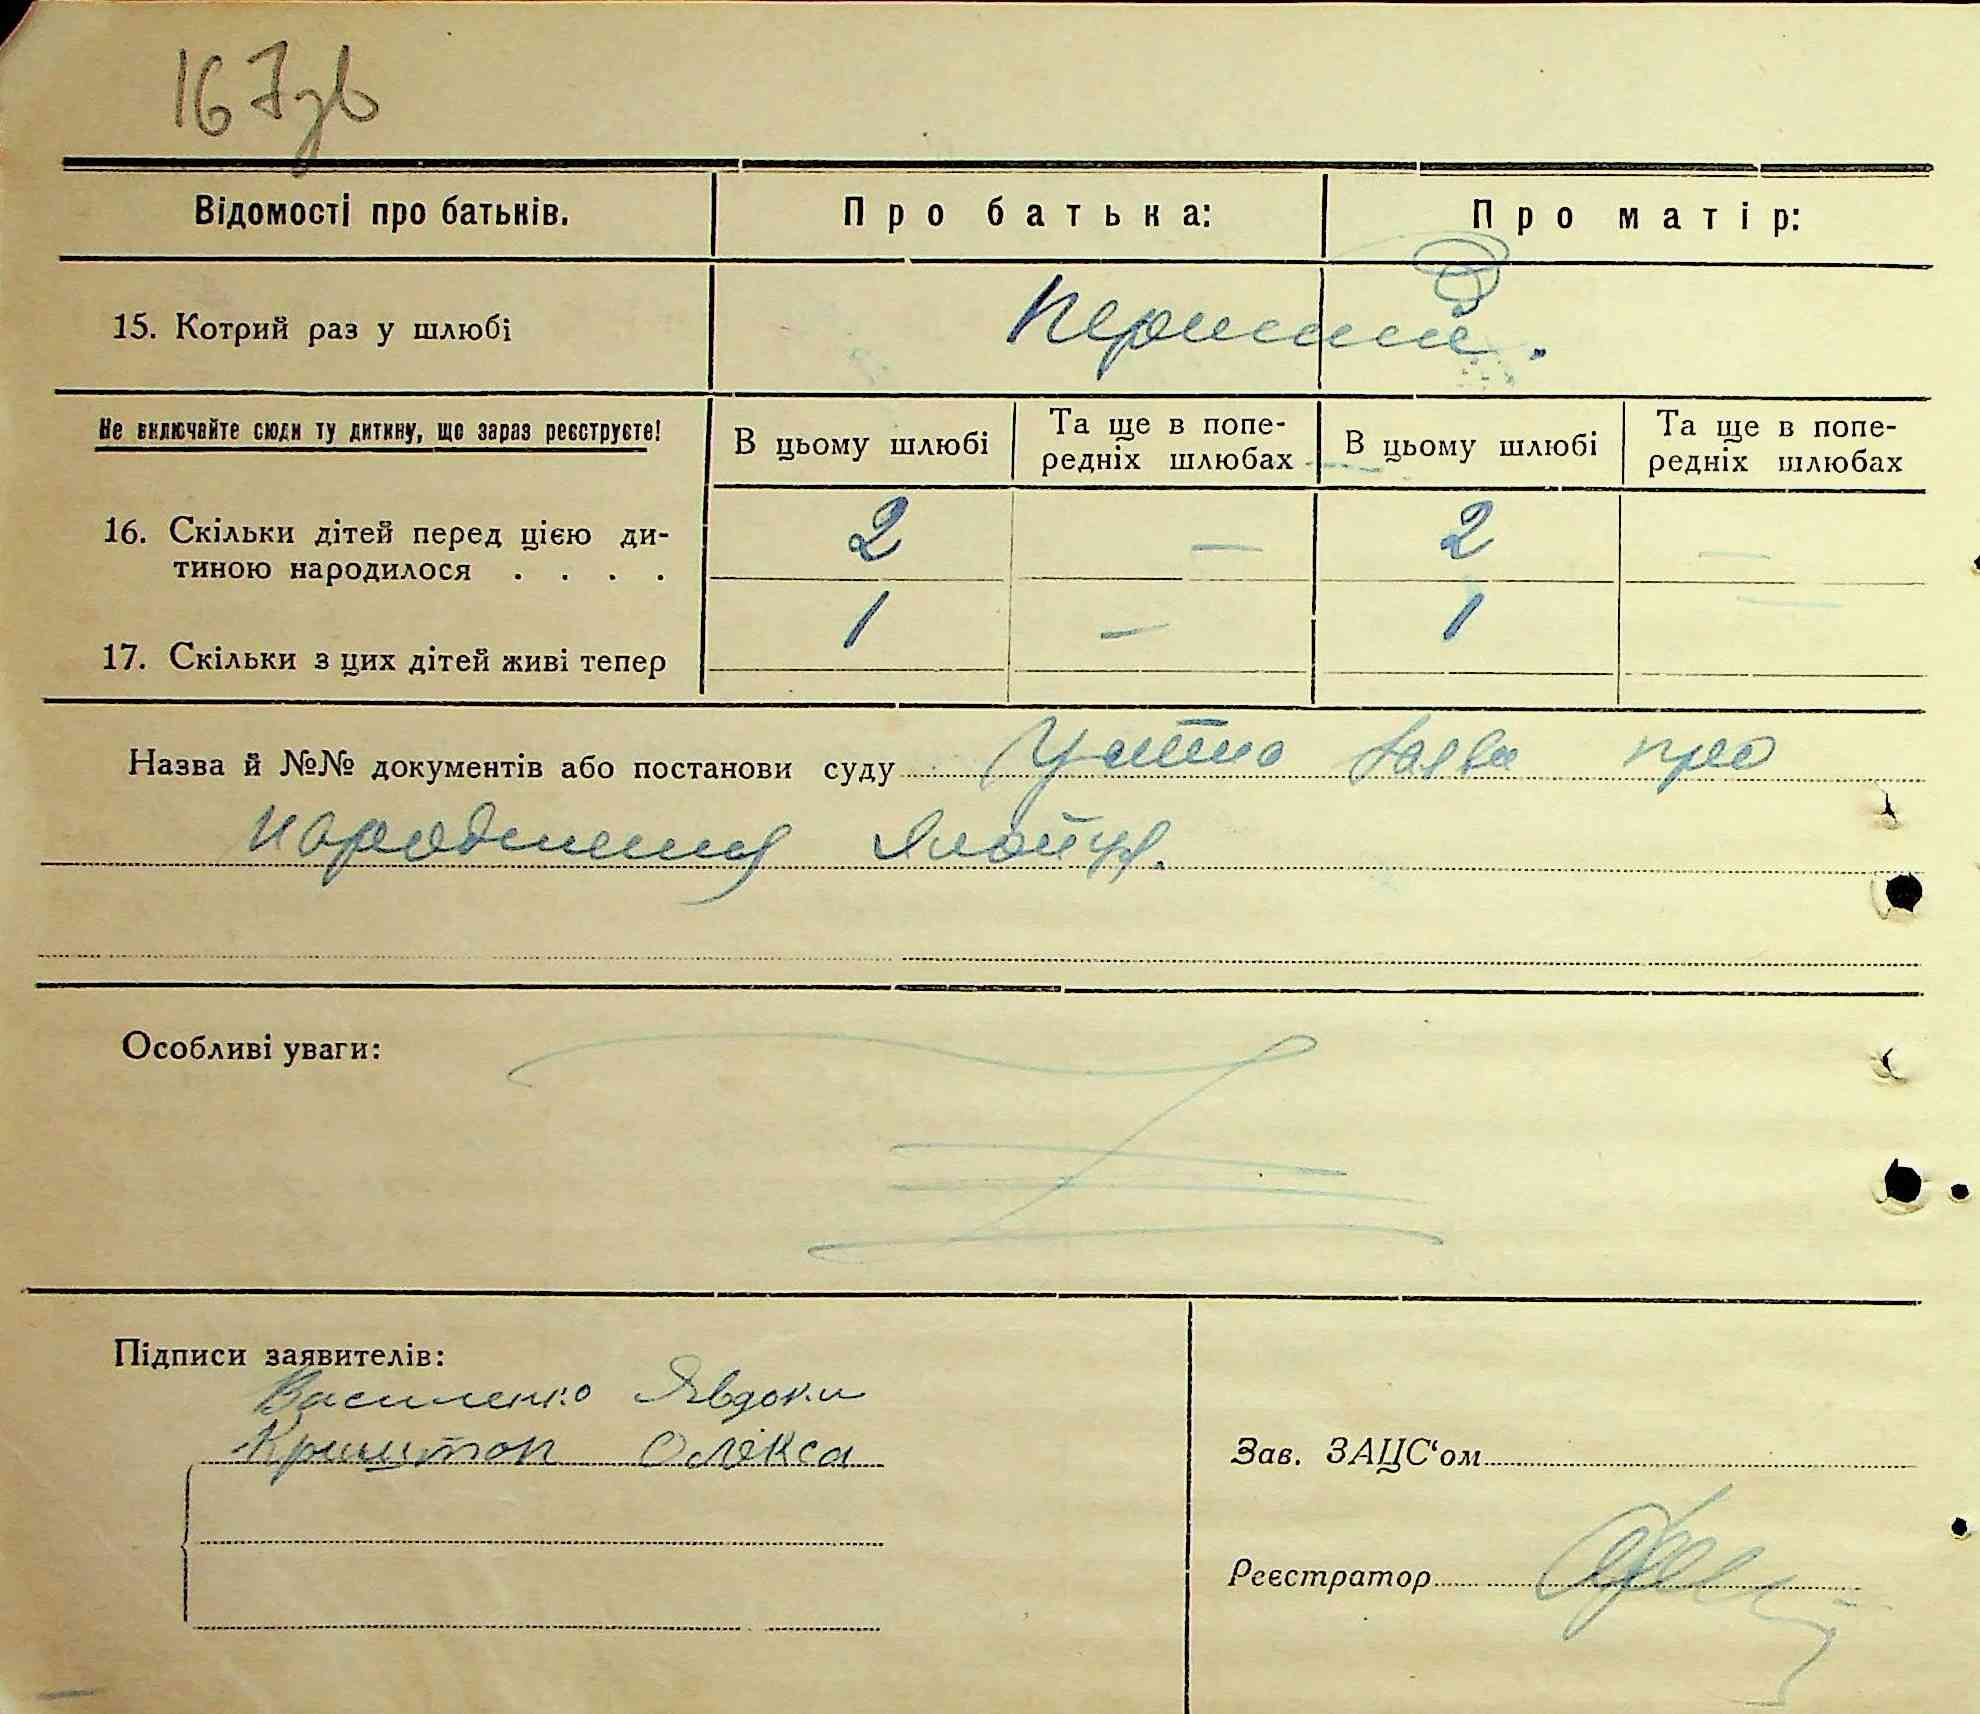 167зв
Відомості про батьків.
Про батька:
Про матір:
15. Котрий раз у шлюбі
Перший.
Не включайте сюди ту дитину, що зараз реєструєте!
В цьому шлюбі
Та ще в попе-
редніх шлюбах
В цьому шлюбі
Та ще в попе-
редніх шлюбах
16. Скільки дітей перед цією ди-
тиною народилося . . . .
2 — 2 —
17. Скільки з цих дітей живі тепер
1 — 1 —
Назва й №№ документів або постанови суду Устна заява про
народження
Особливі уваги:
Підписи заявителів:
Василенко Явдоки
Криштоп Олекса
Зав. ЗАЦС'ом
Реєстратор